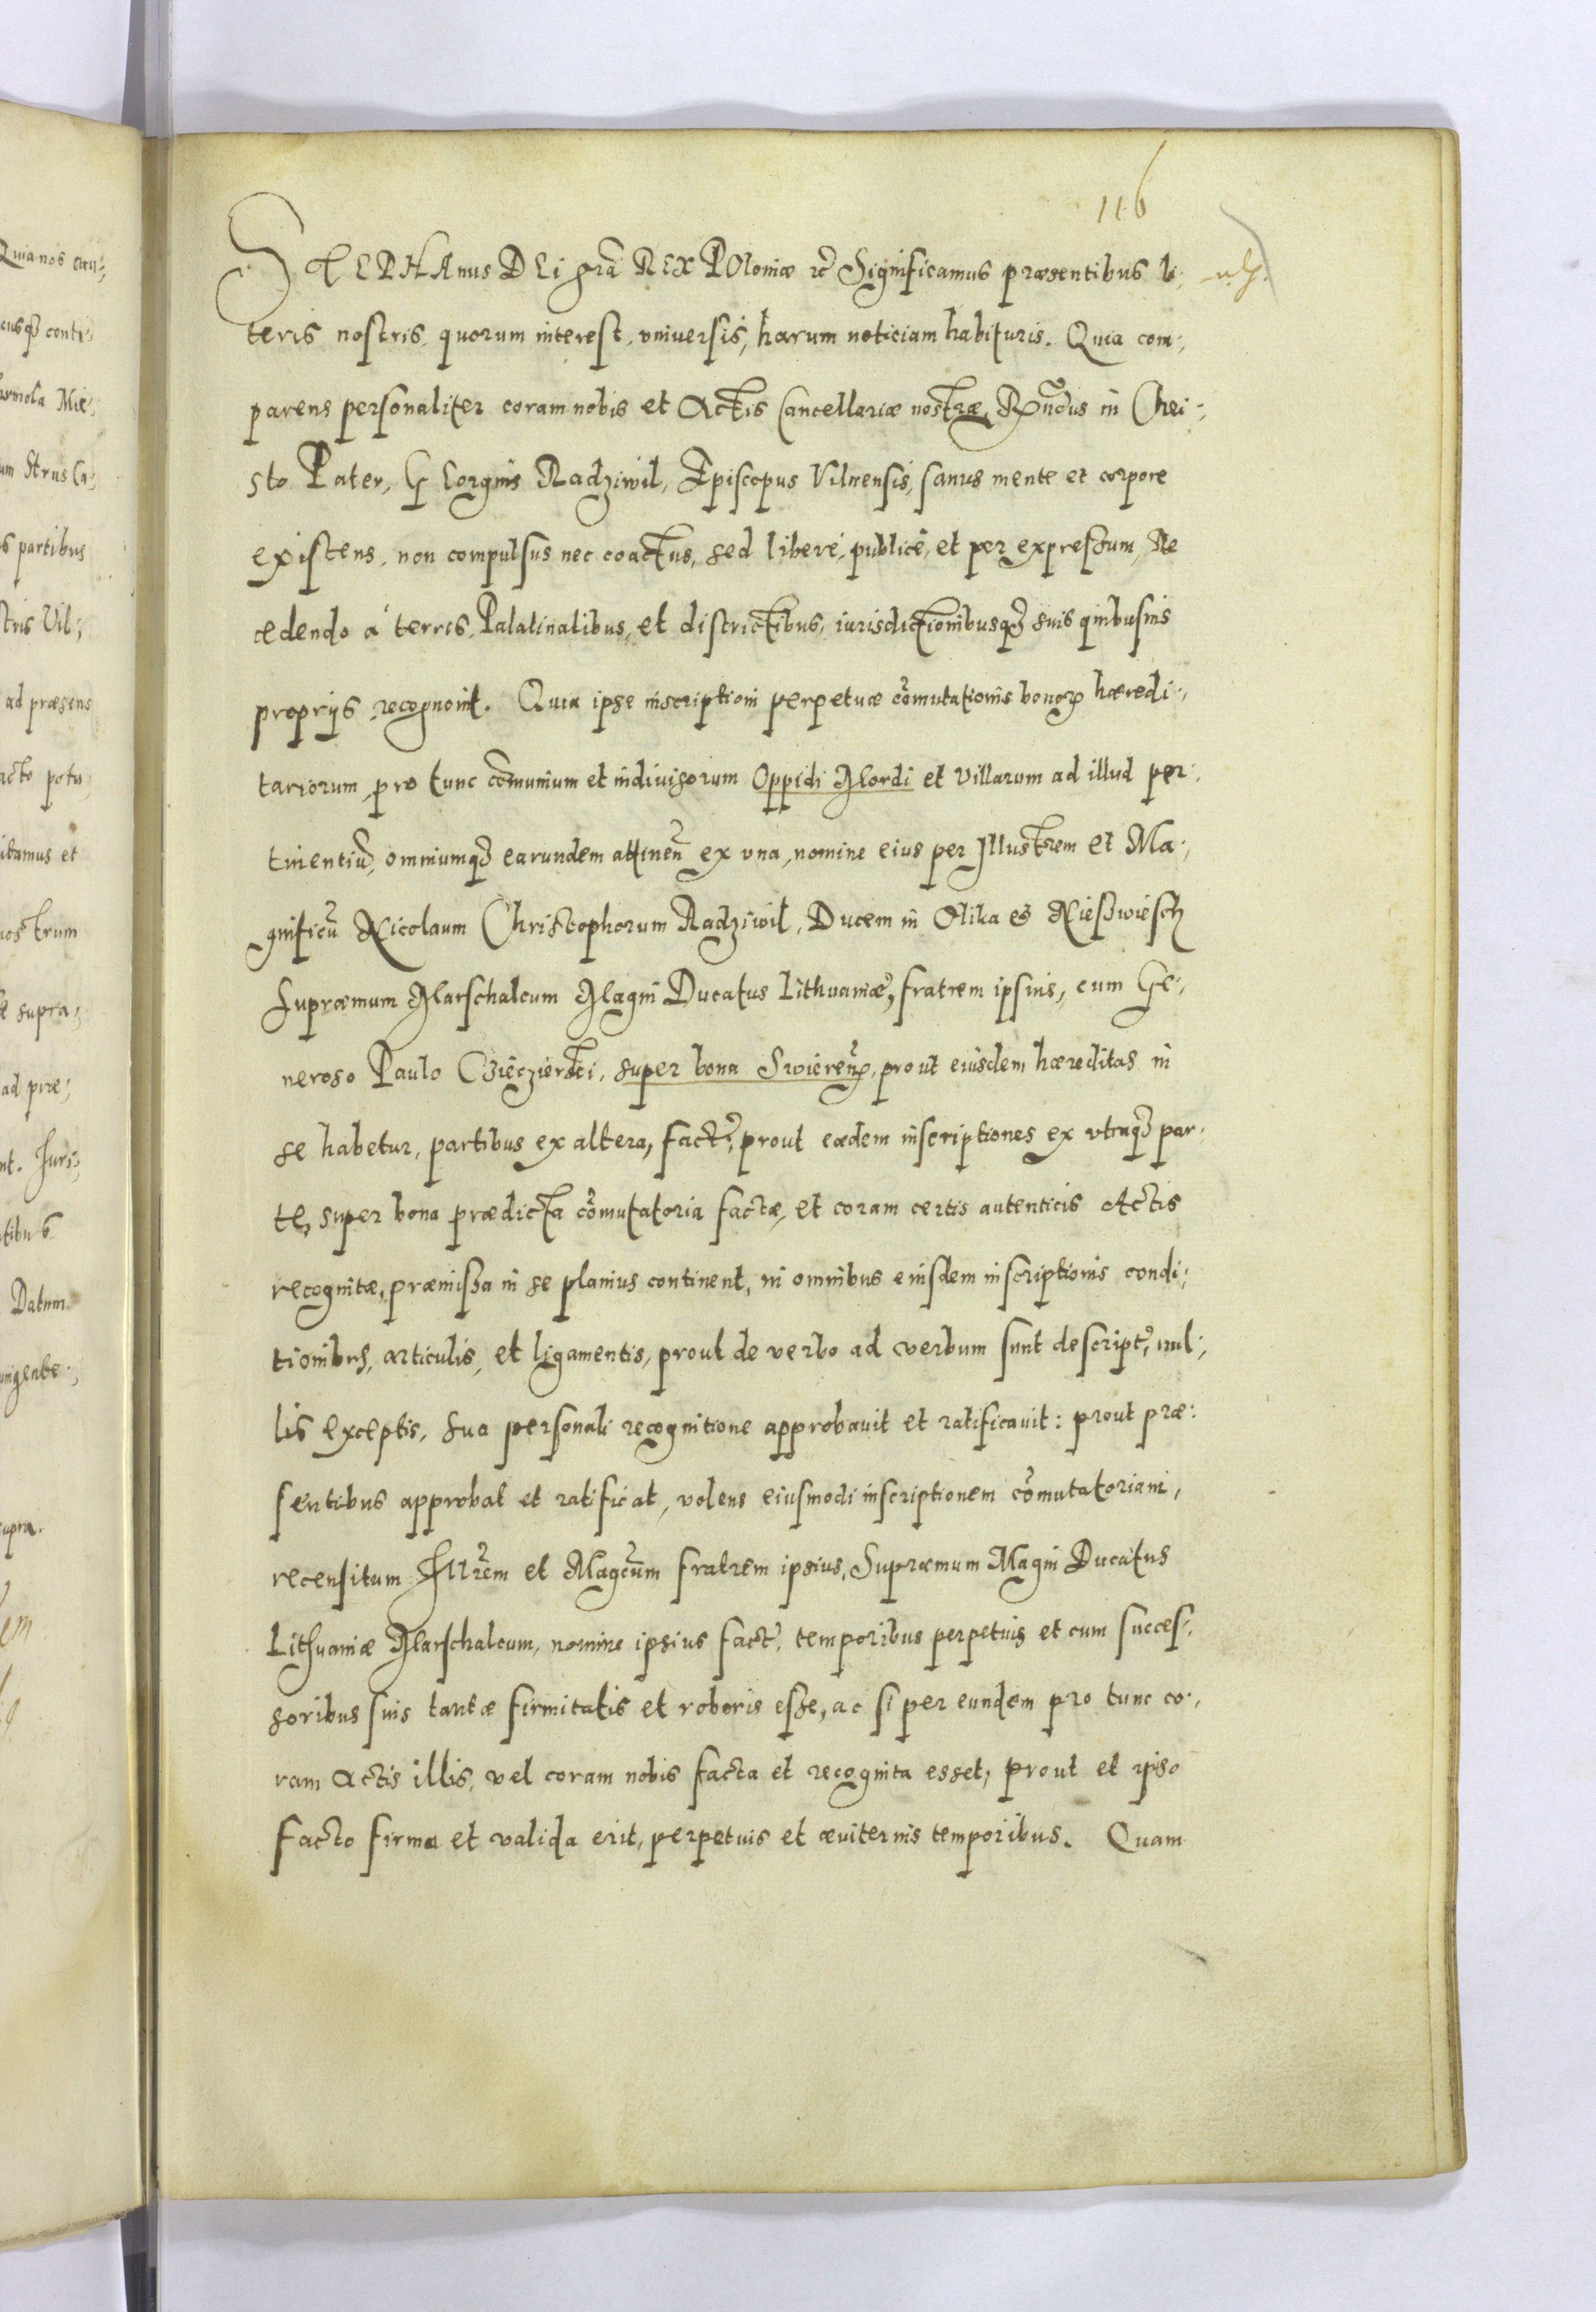 116
STEPHAnus DEi grã REX POloniæ etc Significamus præsentibus li-
teris nostris, quorum interest, vniuersis, harum noticiam habituris. Quia com-
parens personaliter coram nobis et Actis Cancellariæ nostræ, Rñdus in Chri-
sto Pater, GEorgius Radziwil, Episcopus Vilnensis, sanus mente et corpore
existens, non compulsus nec coactus, sed liberè, publicè, et per expressum, Re
cedendo à terris, Palatinalibus, et districtibus, iurisdictionibusq3 suis quibusuis
proprijs recognouit. Quia ipse inscriptioni perpetuæ cõmutationis bonorꝝ hæredi-
tariorum, pro tunc cõmunium et indiuisorum Oppidi Mordi et Villarum ad illud per-
tinentiũ, omniumq3 earundem attineñ ex vna, nomine eius per Illustrem et Ma-
gnificũ Nicolaum Christophorum Radziwil, Ducem in Olika et Nießwiesch
Supræmum Marschalcum Magni Ducatus Lithuaniæ, fratrem ipsius, cum Ge-
neroso Paulo Ciecziersci, super bona Swierenꝝ, prout eiusdem hæreditas in
se habetur, partibus ex altera, fact, prout eædem inscriptiones ex vtraq3 par-
te, super bona prædicta cõmutatoria factæ, et coram certis autenticis Actis
recognitæ, præmissa in se planius continent, in omnibus eiusdem inscriptionis condi-
tionibus, articulis, et ligamentis, prout de verbo ad verbum sunt descript, nul-
lis exceptis, sua personali recognitione approbauit et ratificauit: prout præ-
sentibus approbat et ratificat, volens eiusmodi inscriptionem cõmutatoriam,
recensitum Illrẽm et Magcũm fratrem ipsius, Supræmum Magni Ducatus
Lithuaniæ Marschalcum, nomine ipsius fact, temporibus perpetuis et cum succes-
soribus suis tantæ firmitatis et roboris esse, ac si per eundem pro tunc co-
ram Actis illis, vel coram nobis facta et recognita esset, prout et ipso
facto firma et valida erit, perpetuis et æuiternis temporibus. Quam